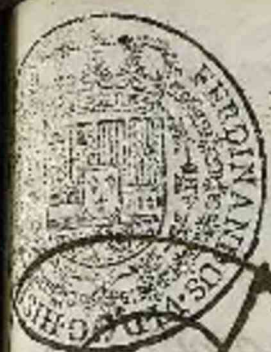 FERDINANDUS·VI·D·G·HIS